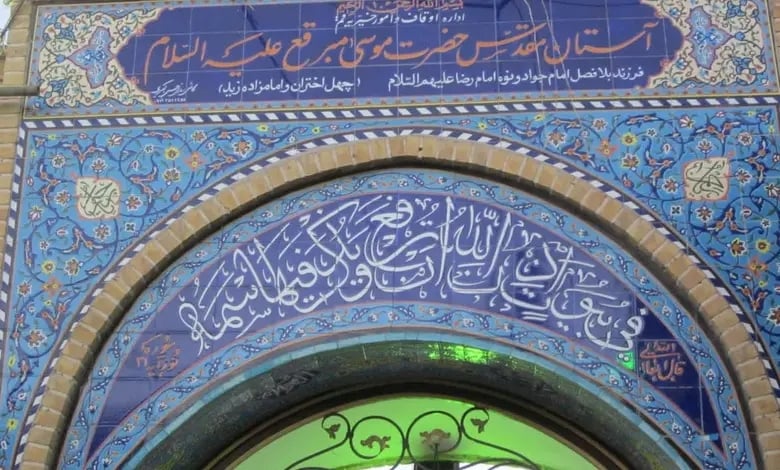 بسم الله الرحمن الرحیم
اداره اوقاف و امور خیریه قم
آستان مقدس حضرت موسی مبرقع علیه السلام
فرزند بلافصل امام جواد و نوه امام رضا علیهم السلام (چهل اختران و امامزاده زید)
فی بیوت اذن الله ان ترفع و یذکر فیها اسمه
قال الله تعالی